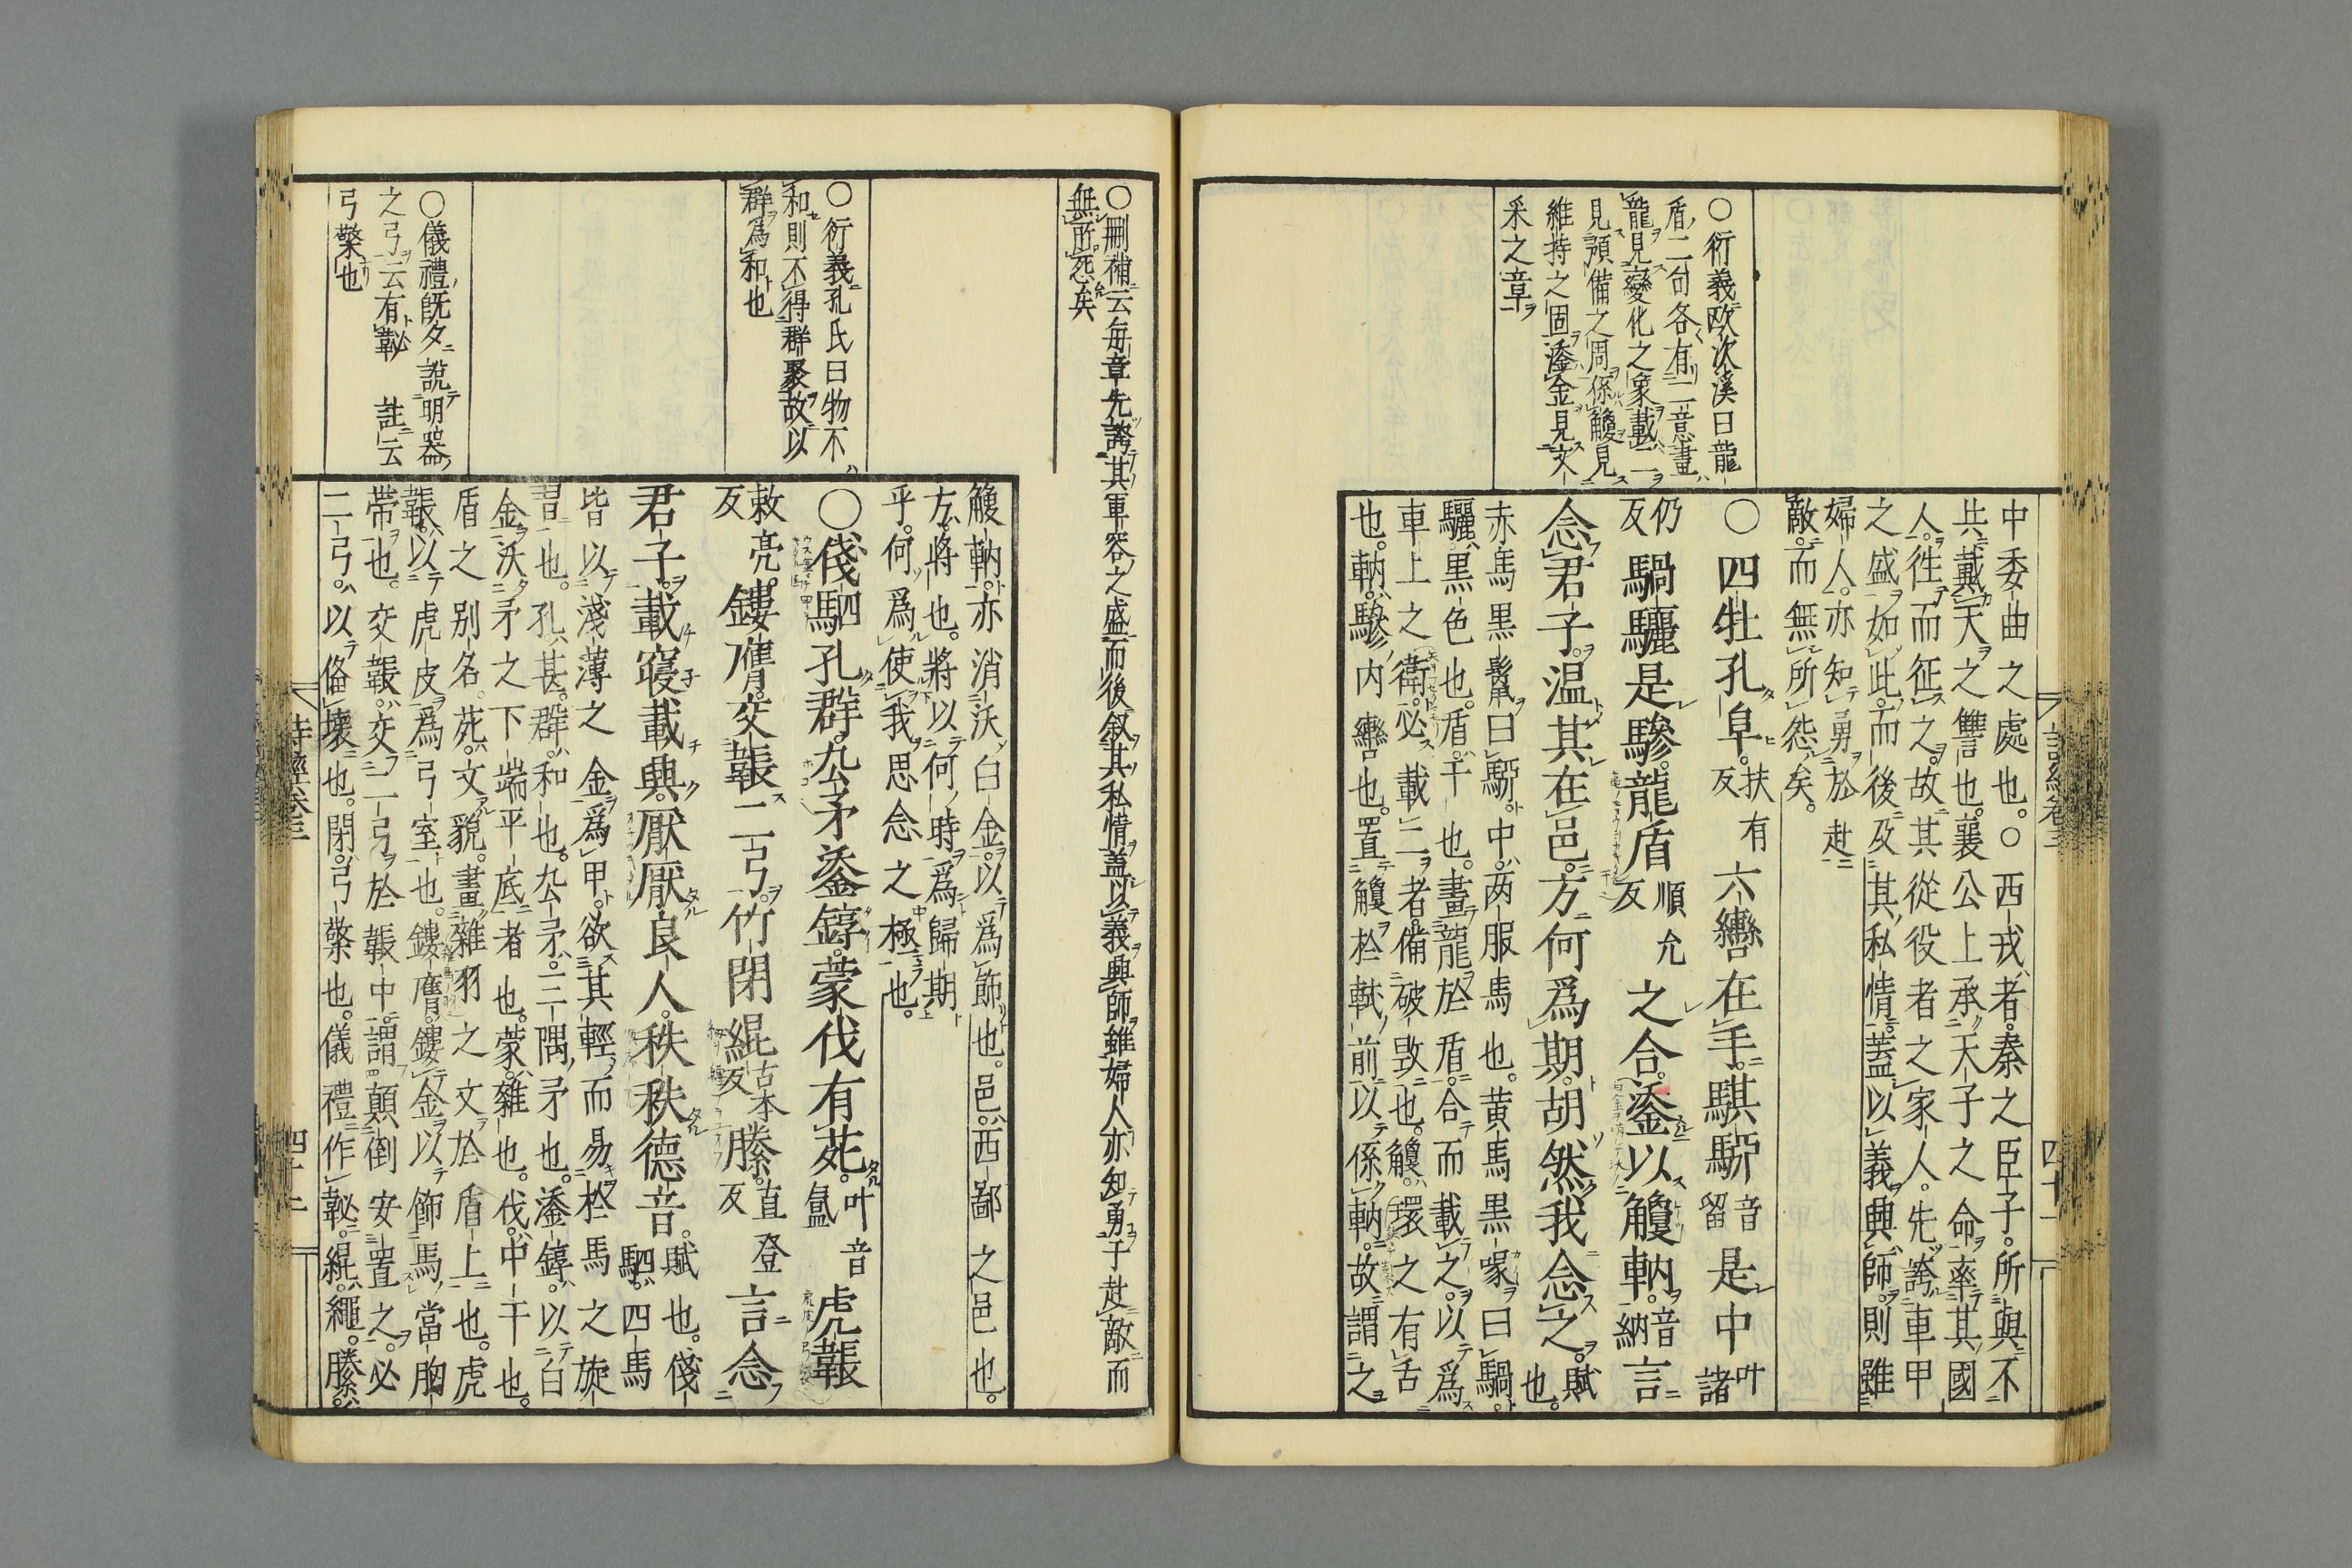 ○衍義歐次溪曰龍
盾二句各有二意畫
龍見變化之象載二
見預備之周係觼見
維持之固鋈金見文
釆之章
中委曲之處也○西戎者秦之臣子所與不
共戴天之讐也襄公上承天子之命率其國
人往而征之故其從役者之家人先誇車甲
之盛如此而後及其私情蓋以義興師則雖
婦人亦知勇於赴
敵而無所怨矣
○四牡孔阜扶有反六轡在手騏駵音留是中叶諸
仍反騧驪是驂龍盾順允反之合鋈以觼軜音納言
念君子溫其在邑方何爲期胡然我念之賦也
赤馬黒鬛曰駵中兩服馬也黄馬黒喙曰騧
驪黒色也盾干也畫龍於盾合而載之以爲
車上之衛必載二者備破毀也觼環之有舌
也軜驂内轡也置觼於軾前以係軜故謂之
詩經卷三
四十一
○刪補云毎章先誇其軍容之盛而後叙其私情蓋以義興師雖婦人亦知勇于赴敵而
無所怨矣
○衍義孔氏曰物不
和則不得群聚故以
群爲和也
○儀禮既夕說明器
之弓云有䪐註云
弓檠也
觼軜亦消沃白金以爲飾也邑西鄙之邑也
方將也將以何時爲歸期
乎何爲使我思念之極也
○俴駟孔群厹矛鋈錞蒙伐有苑叶音氳虎韔
敕亮反鏤膺交韔二弓竹閉緄古本反縢直登反言念
君子載寢載興厭厭良人秩秩德音賦也俴駟四馬
皆以淺薄之金爲甲欲其輕而易於馬之旋
習也孔甚群和也厹矛三隅矛也鋈錞以白
金沃矛之下端平底者也蒙雜也伐中干也
盾之别名苑文貌畫雜羽之文於盾上也虎
韔以虎皮爲弓室也鏤膺鏤金以飾馬當胸
帶也交韔交二弓於韔中謂顛倒安置之必
二弓以備壞也閉弓檠也儀禮作䪐緄繩縢
詩經卷三
四十二